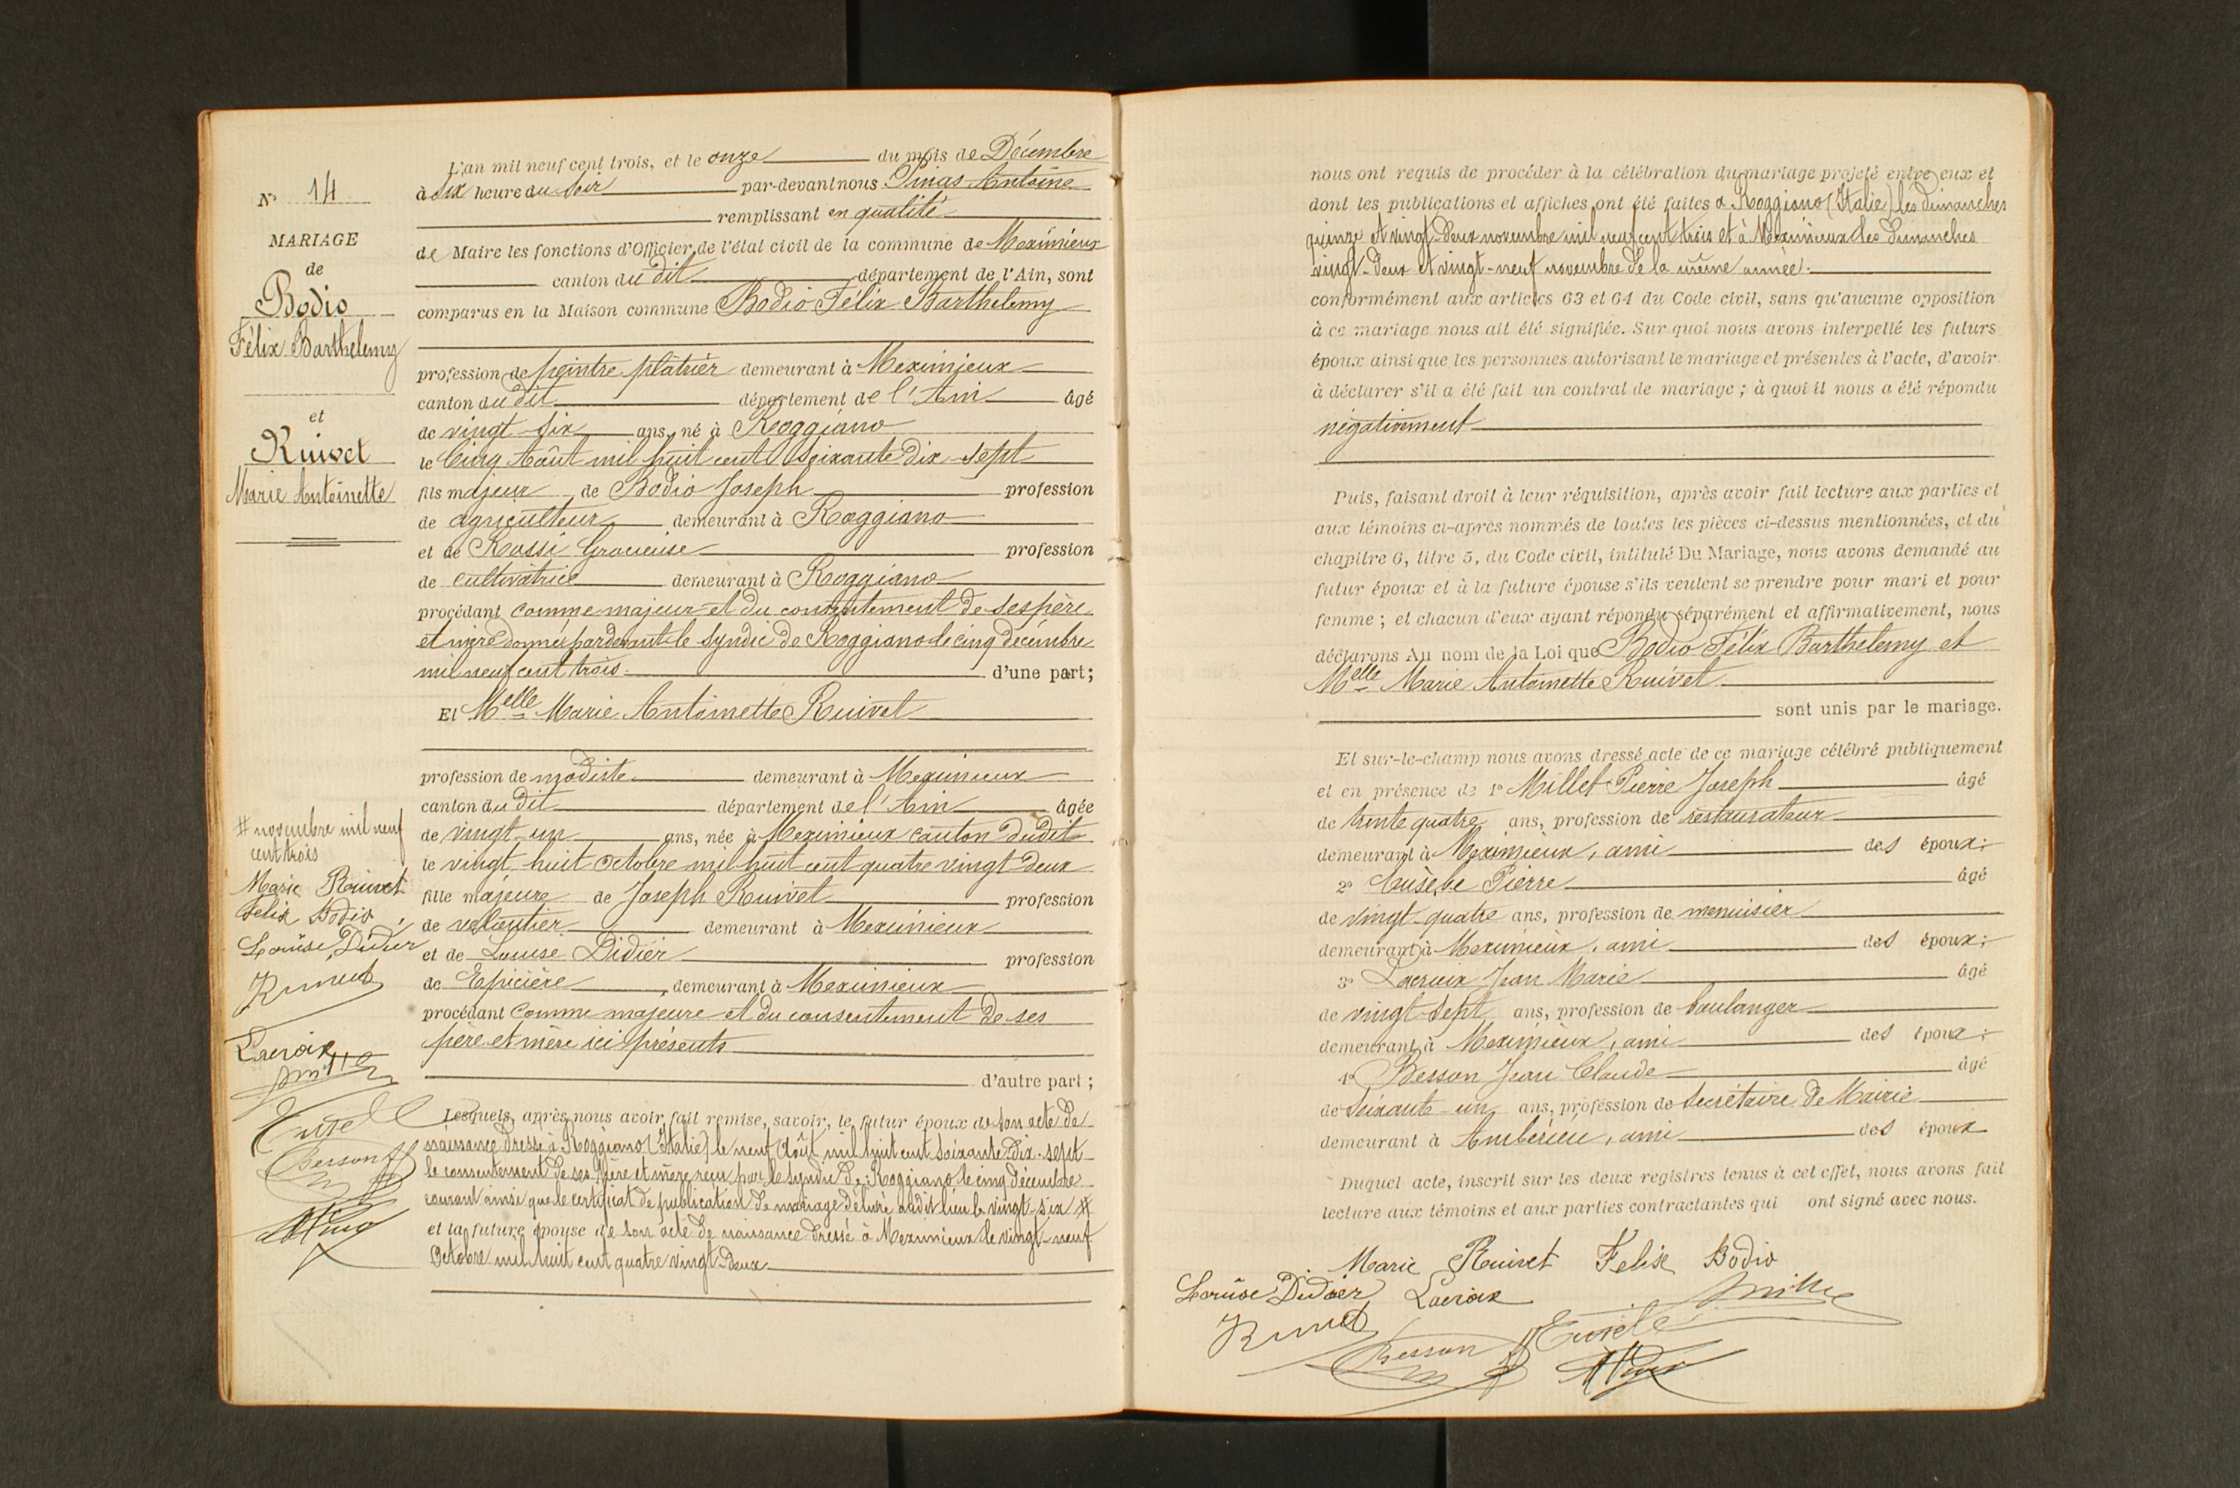 N° 14
MARIAGE
de
Bodio
Félix Barthelemy
et
Ruivet
Marie Antoinette
L'an mil neuf cent trois, et le onze du mois de Décembre
à six heure du soir par-devant nous Pinas Antoine
remplissant en qualité
de Maire les fonctions d'Officier de l'état civil de la commune de Meximieux
canton du dit département de l'Ain, sont
comparus en la Maison commune Bodio Félix Barthelemy
profession de peintre plâtrier demeurant à Meximieux
canton du dit département de l'Ain âgé
de vingt six ans, né à Roggiano
le Cinq Août mil huit cent soixante dix-sept
fils majeur de Bodio Joseph profession
de agriculteur demeurant à Roggiano
et de Rossi Gracieuse profession
de cultivatrice demeurant à Roggiano
procédant comme majeur et du consentement de ses père
et mère donné pardevant le Syndic de Roggiano le cinq décembre
mil neuf cent trois d'une part;
Et Melle Marie Antoinette Ruivet
profession de modiste demeurant à Meximieux
canton du dit département de l'Ain âgée
de vingt-un ans, née à Meximieux canton dudit
le vingt huit Octobre mil huit cent quatre vingt deux
fille majeure de Joseph Ruivet profession
de demeurant à Meximieux
et de Louise Didier profession
de Epicière demeurant à Meximieux
procédant comme majeure et du consentement de ses
père et mère ici présents
d'autre part;
Lesquels, après nous avoir fait remise, savoir, le futur époux de son acte de
naissance dressé à Roggiano (Italie) le neuf Août mil huit cent soixante dix-sept
le consentement de ses père et mère reçu par le Syndic de Roggiano le cinq décembre
courant ainsi que le certificat de publication de mariage délivré audit lieu le vingt-six #
et la future épouse de son acte de naissance dressé à Meximieux le vingt-neuf
Octobre mil huit cent quatre vingt-deux
# novembre mil neuf
cent trois
Marie Ruivet
Felix Bodio
Louise Didier
Ruivet
Lacroix
Besson
nous ont requis de procéder à la célébration du mariage projeté entre eux et
dont les publications et affiches ont été faites à Roggiano (Italie) les dimanches
quinze et vingt-deux novembre mil neuf cent trois et à Meximieux les dimanches
vingt-deux et vingt-neuf novembre de la même année.
conformément aux articles 63 et 64 du Code civil, sans qu'aucune opposition
à ce mariage nous ait été signifiée. Sur quoi nous avons interpellé les futurs
époux ainsi que les personnes autorisant le mariage et présentes à l'acte, d'avoir
à déclarer s'il a été fait un contrat de mariage; à quoi il nous a été répondu
négativement
Puis, faisant droit à leur réquisition, après avoir fait lecture aux parties et
aux témoins ci-après nommés de toutes les pièces ci-dessus mentionnées, et du
chapitre 6, titre 5, du Code civil, intitulé Du Mariage, nous avons demandé au
futur époux et à la future épouse s'ils veulent se prendre pour mari et pour
femme; et chacun d'eux ayant répondu séparément et affirmativement, nous
déclarons Au nom de la Loi que Bodio Félix Barthelemy et
Melle Marie Antoinette Ruivet
sont unis par le mariage.
Et sur-le-champ nous avons dressé acte de ce mariage célébré publiquement
et en présence de 1° Millet Pierre Joseph âgé
de trente quatre ans, profession de restaurateur
demeurant à Meximieux, ami des époux;
2° Eusèbe Pierre âgé
de vingt-quatre ans, profession de menuisier
demeurant à Meximieux, ami des époux;
3° Lacroix Jean Marie âgé
de vingt-sept ans, profession de boulanger
demeurant à Meximieux, ami des époux;
4° Besson Jean Claude âgé
de soixante-un ans, profession de Secrétaire de Mairie
demeurant à Ambérieu, ami des époux
Duquel acte, inscrit sur les deux registres tenus à cet effet, nous avons fait
lecture aux témoins et aux parties contractantes qui ont signé avec nous.
Marie Ruivet Felix Bodio
Louise Didier Lacroix
Ruivet Besson